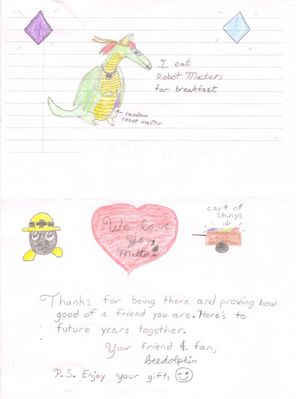 I eat
Robot Masters
for breakfast
random
robot master
cart of
shinys
We Love
you
Matto
Thanks for being there and proving how
good of a friend you are. Here's to
future years together.
Your friend & fan,
Beedolphin
P.S. Enjoy your gifts